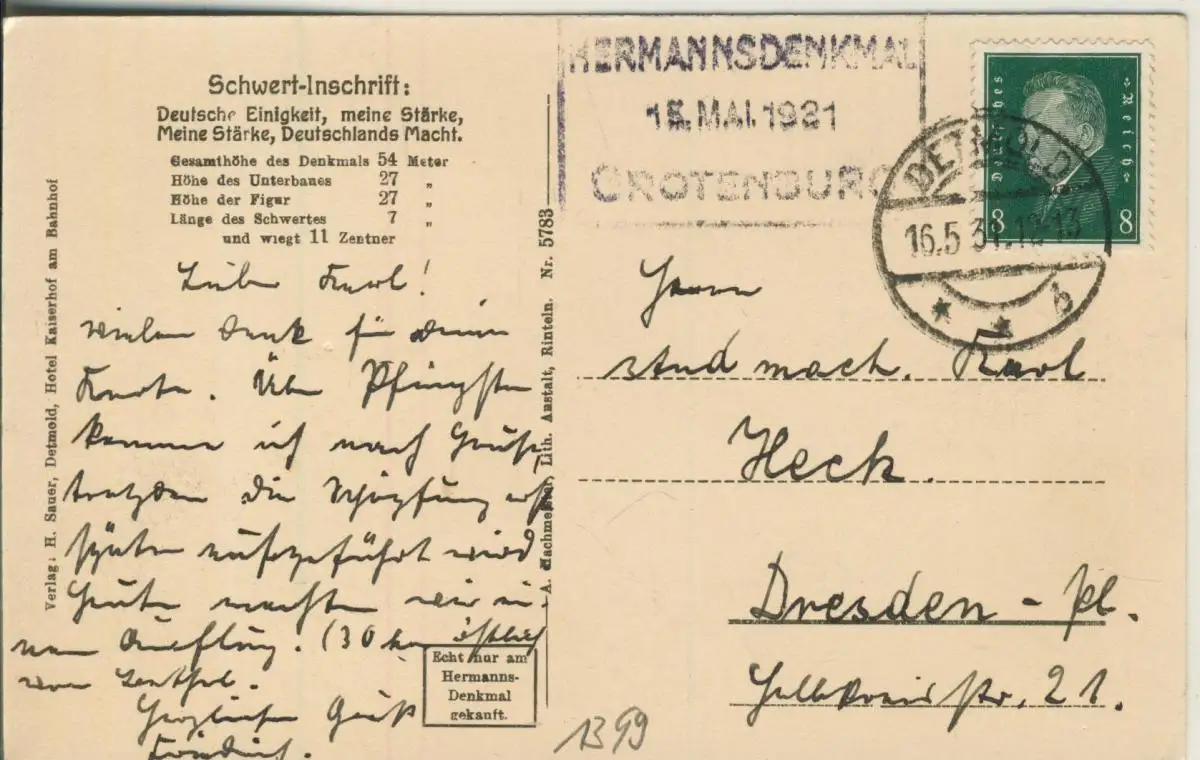 Schwert-Inschrift:
Deutsche Einigkeit, meine Stärke,
Meine Stärke, Deutschlands Macht.
Gesamthöhe des Denkmals 54 Meter
Höhe des Unterbaues 27 „
Höhe der Figur 27 „
Länge des Schwertes 7 „
und wiegt 11 Zentner
Verlag: H. Sauer, Detmold, Hotel Kaiserhof am Bahnhof
Lieber Karl!
vielen Dank für deine
Karte. Über Pfingsten
komme ich nach Hause,
trotzdem die Schöpfung erst
später aufgeführt wird
Heute machten wir
Ausflug. (30 km östlich
von
Herzlichen Gruß
Friedrich.
Echt nur am
Hermanns-
Denkmal
gekauft.
A. Hachmeister, Lith. Anstalt, Rinteln. Nr. 5783
HERMANNSDENKMAL
15. MAI. 1931
GROTENBURG
Deutsches Reich
8 8
DETMOLD
16.5 31. 12-13
* * b
Herrn
stud mach. Karl
Heck.
Dresden - Pl.
21.
1399